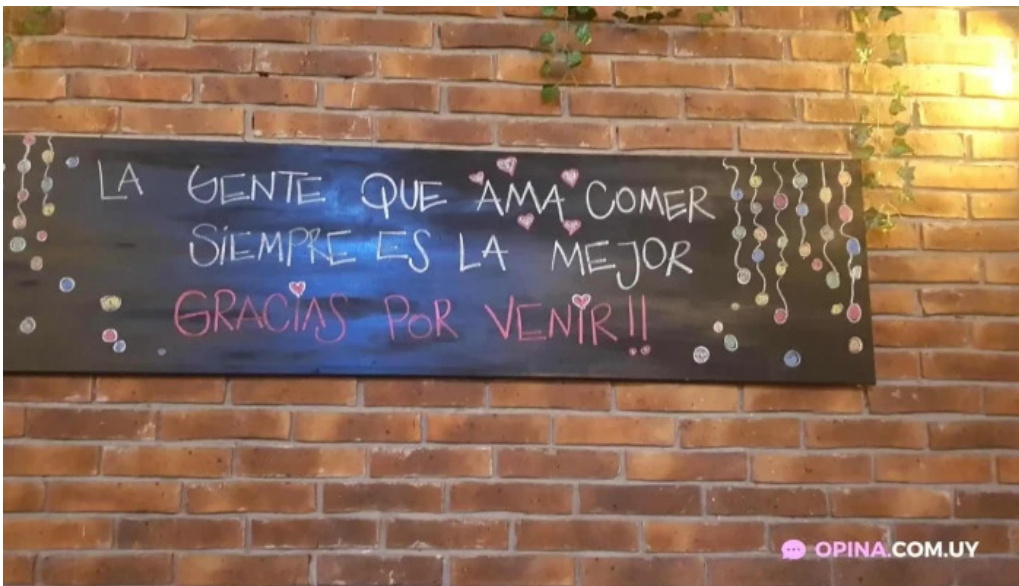 LA GENTE QUE AMA COMER
SIEMPRE ES LA MEJOR
GRACIAS POR VENIR!!
OPINA.COM.UY